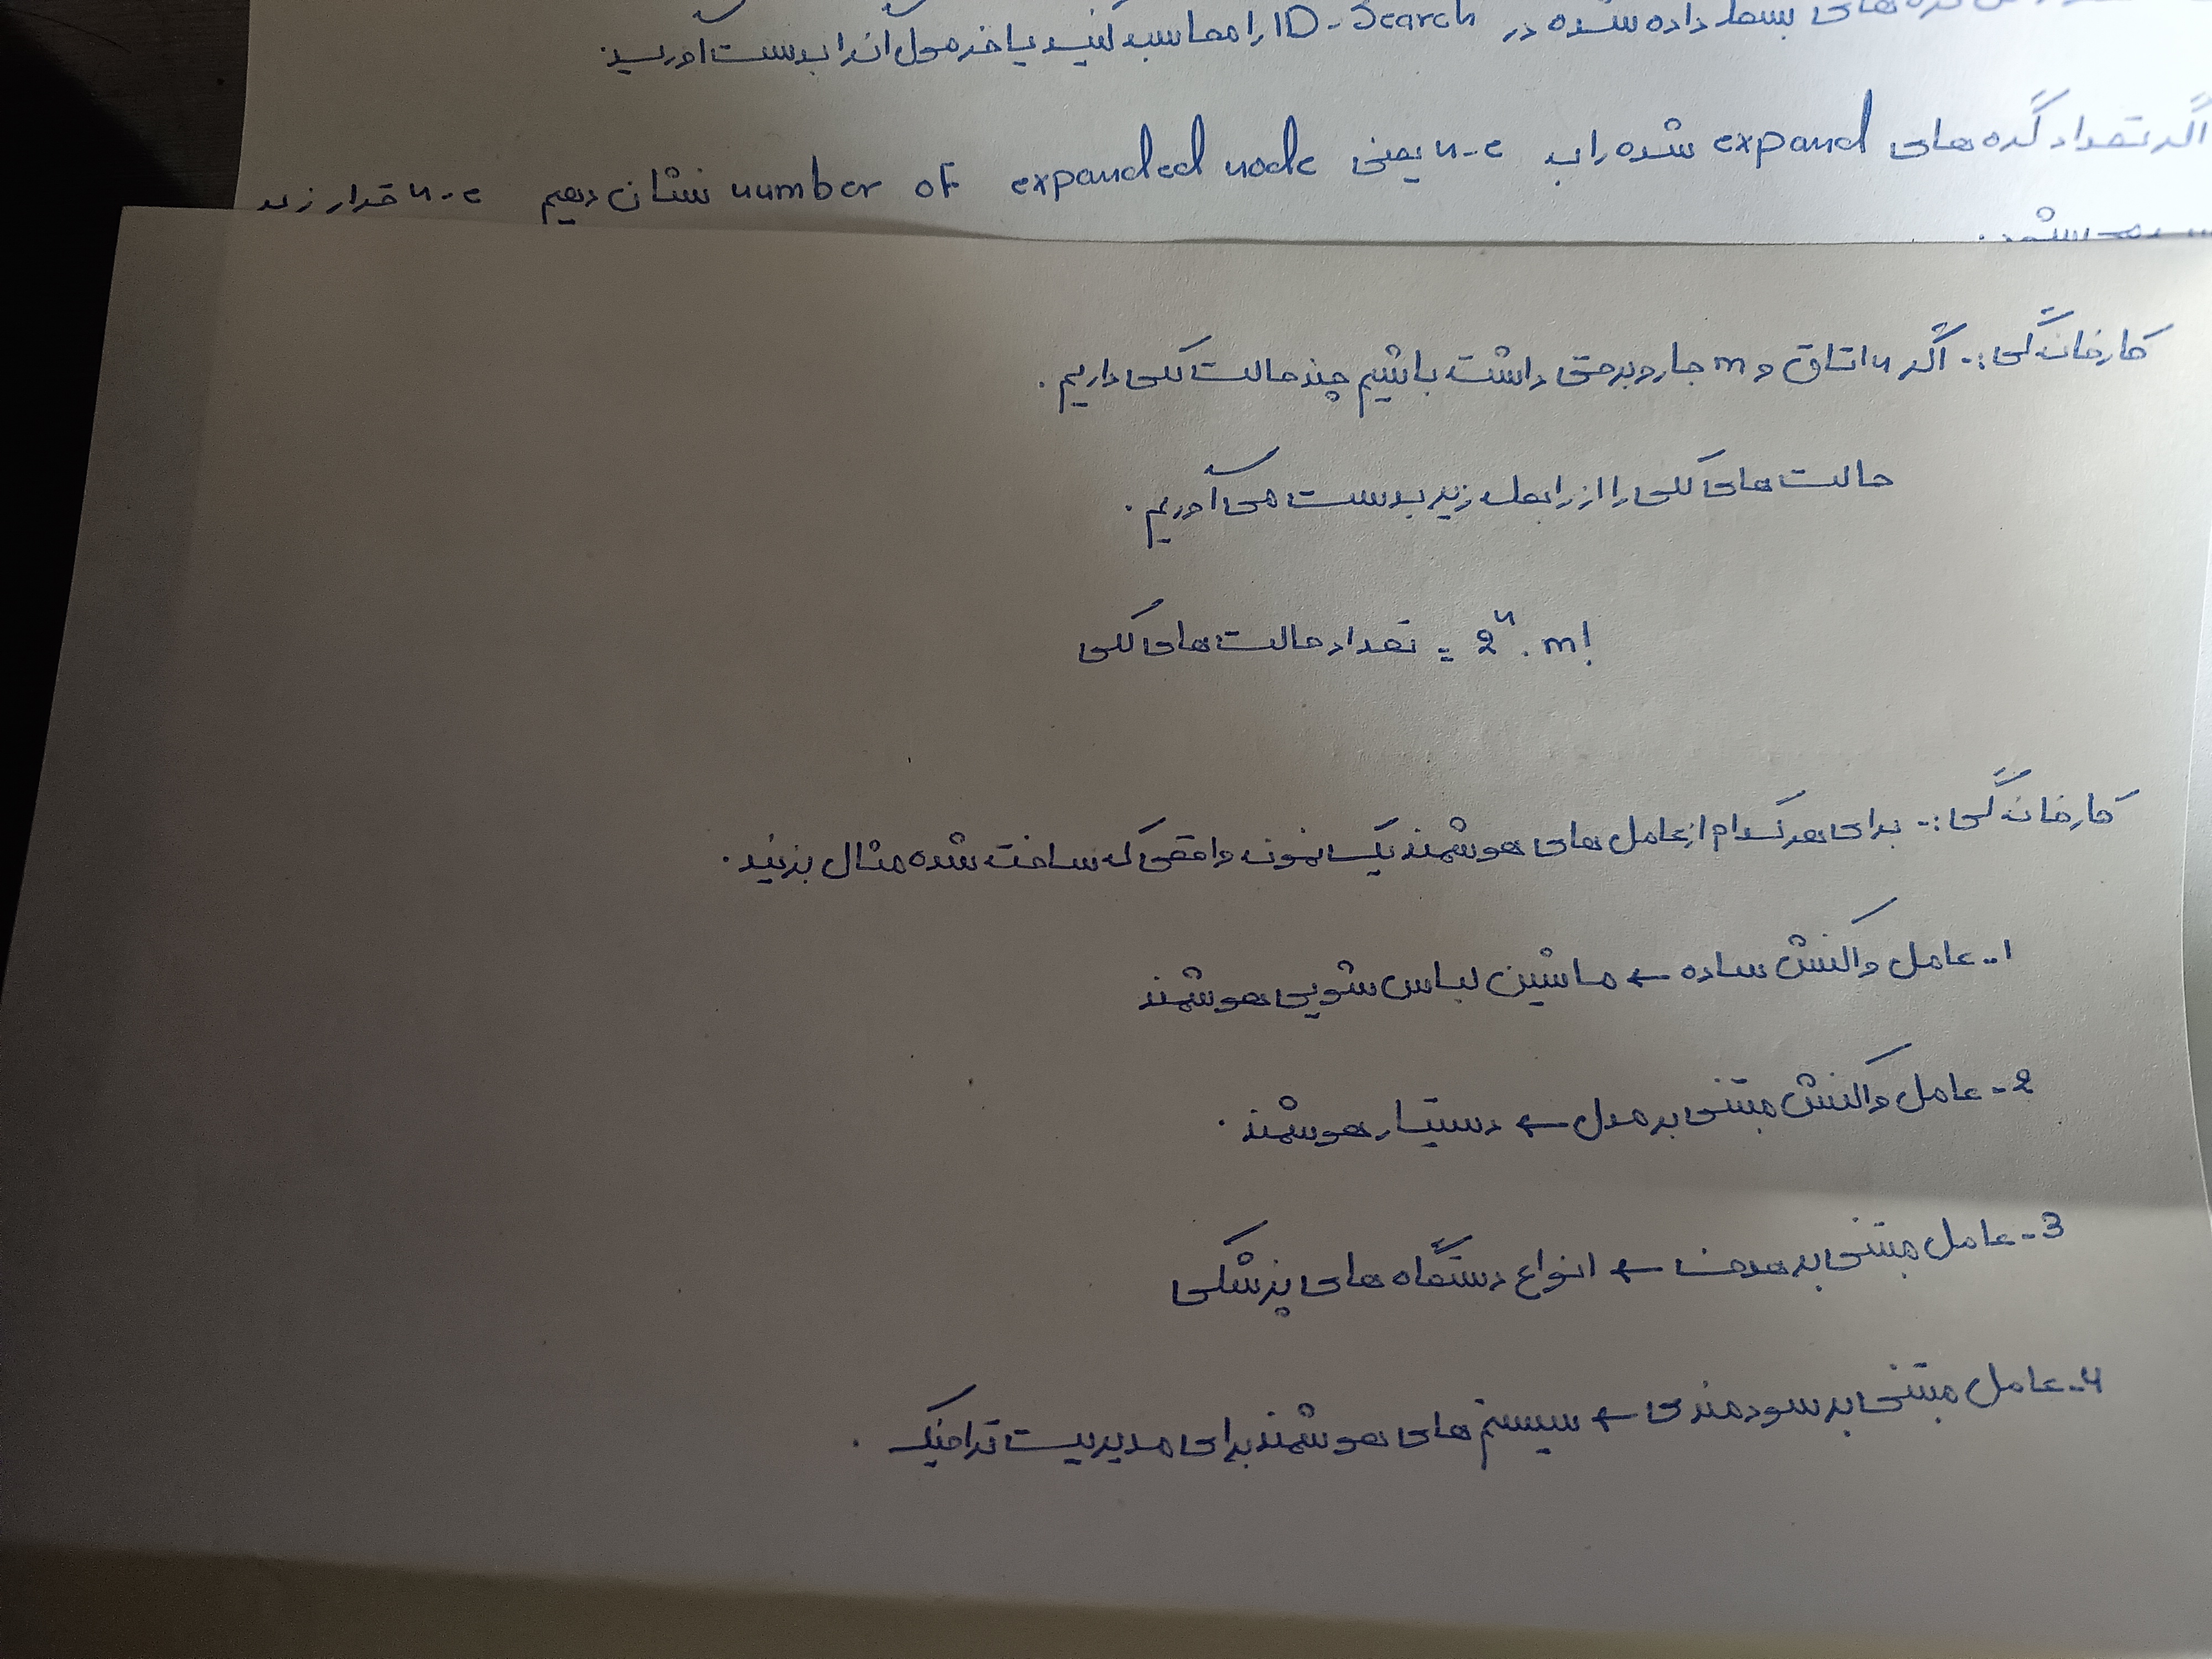 های بسط داده شده در ID-Search را محاسبه کنید یا فرمول آنرا بدست آورید
اگر تعداد گره های expand شده را به n-e یعنی number of expanded node نشان دهیم n-e قدار زیر
کارخانه گی:- اگر n اتاق و m جارو برقی داشت باشیم چند حالت کلی داریم.
حالت های کلی را از رابطه زیر بدست می آوریم.
تعداد حالت های کلی = 2ⁿ . m!
کارخانه گی:- برای هر کدام از عامل های هوشمند یک نمونه واقعی که ساخت شده مثال بزنید.
1- عامل واکنش ساده ← ماشین لباس شویی هوشمند
2- عامل واکنش مبتنی بر مدل ← دستیار هوشمند.
3- عامل مبتنی بر هدف ← انواع دستگاه های پزشکی
4- عامل مبتنی بر سودمندی ← سیستم های هوشمند برای مدیریت ترافیک.